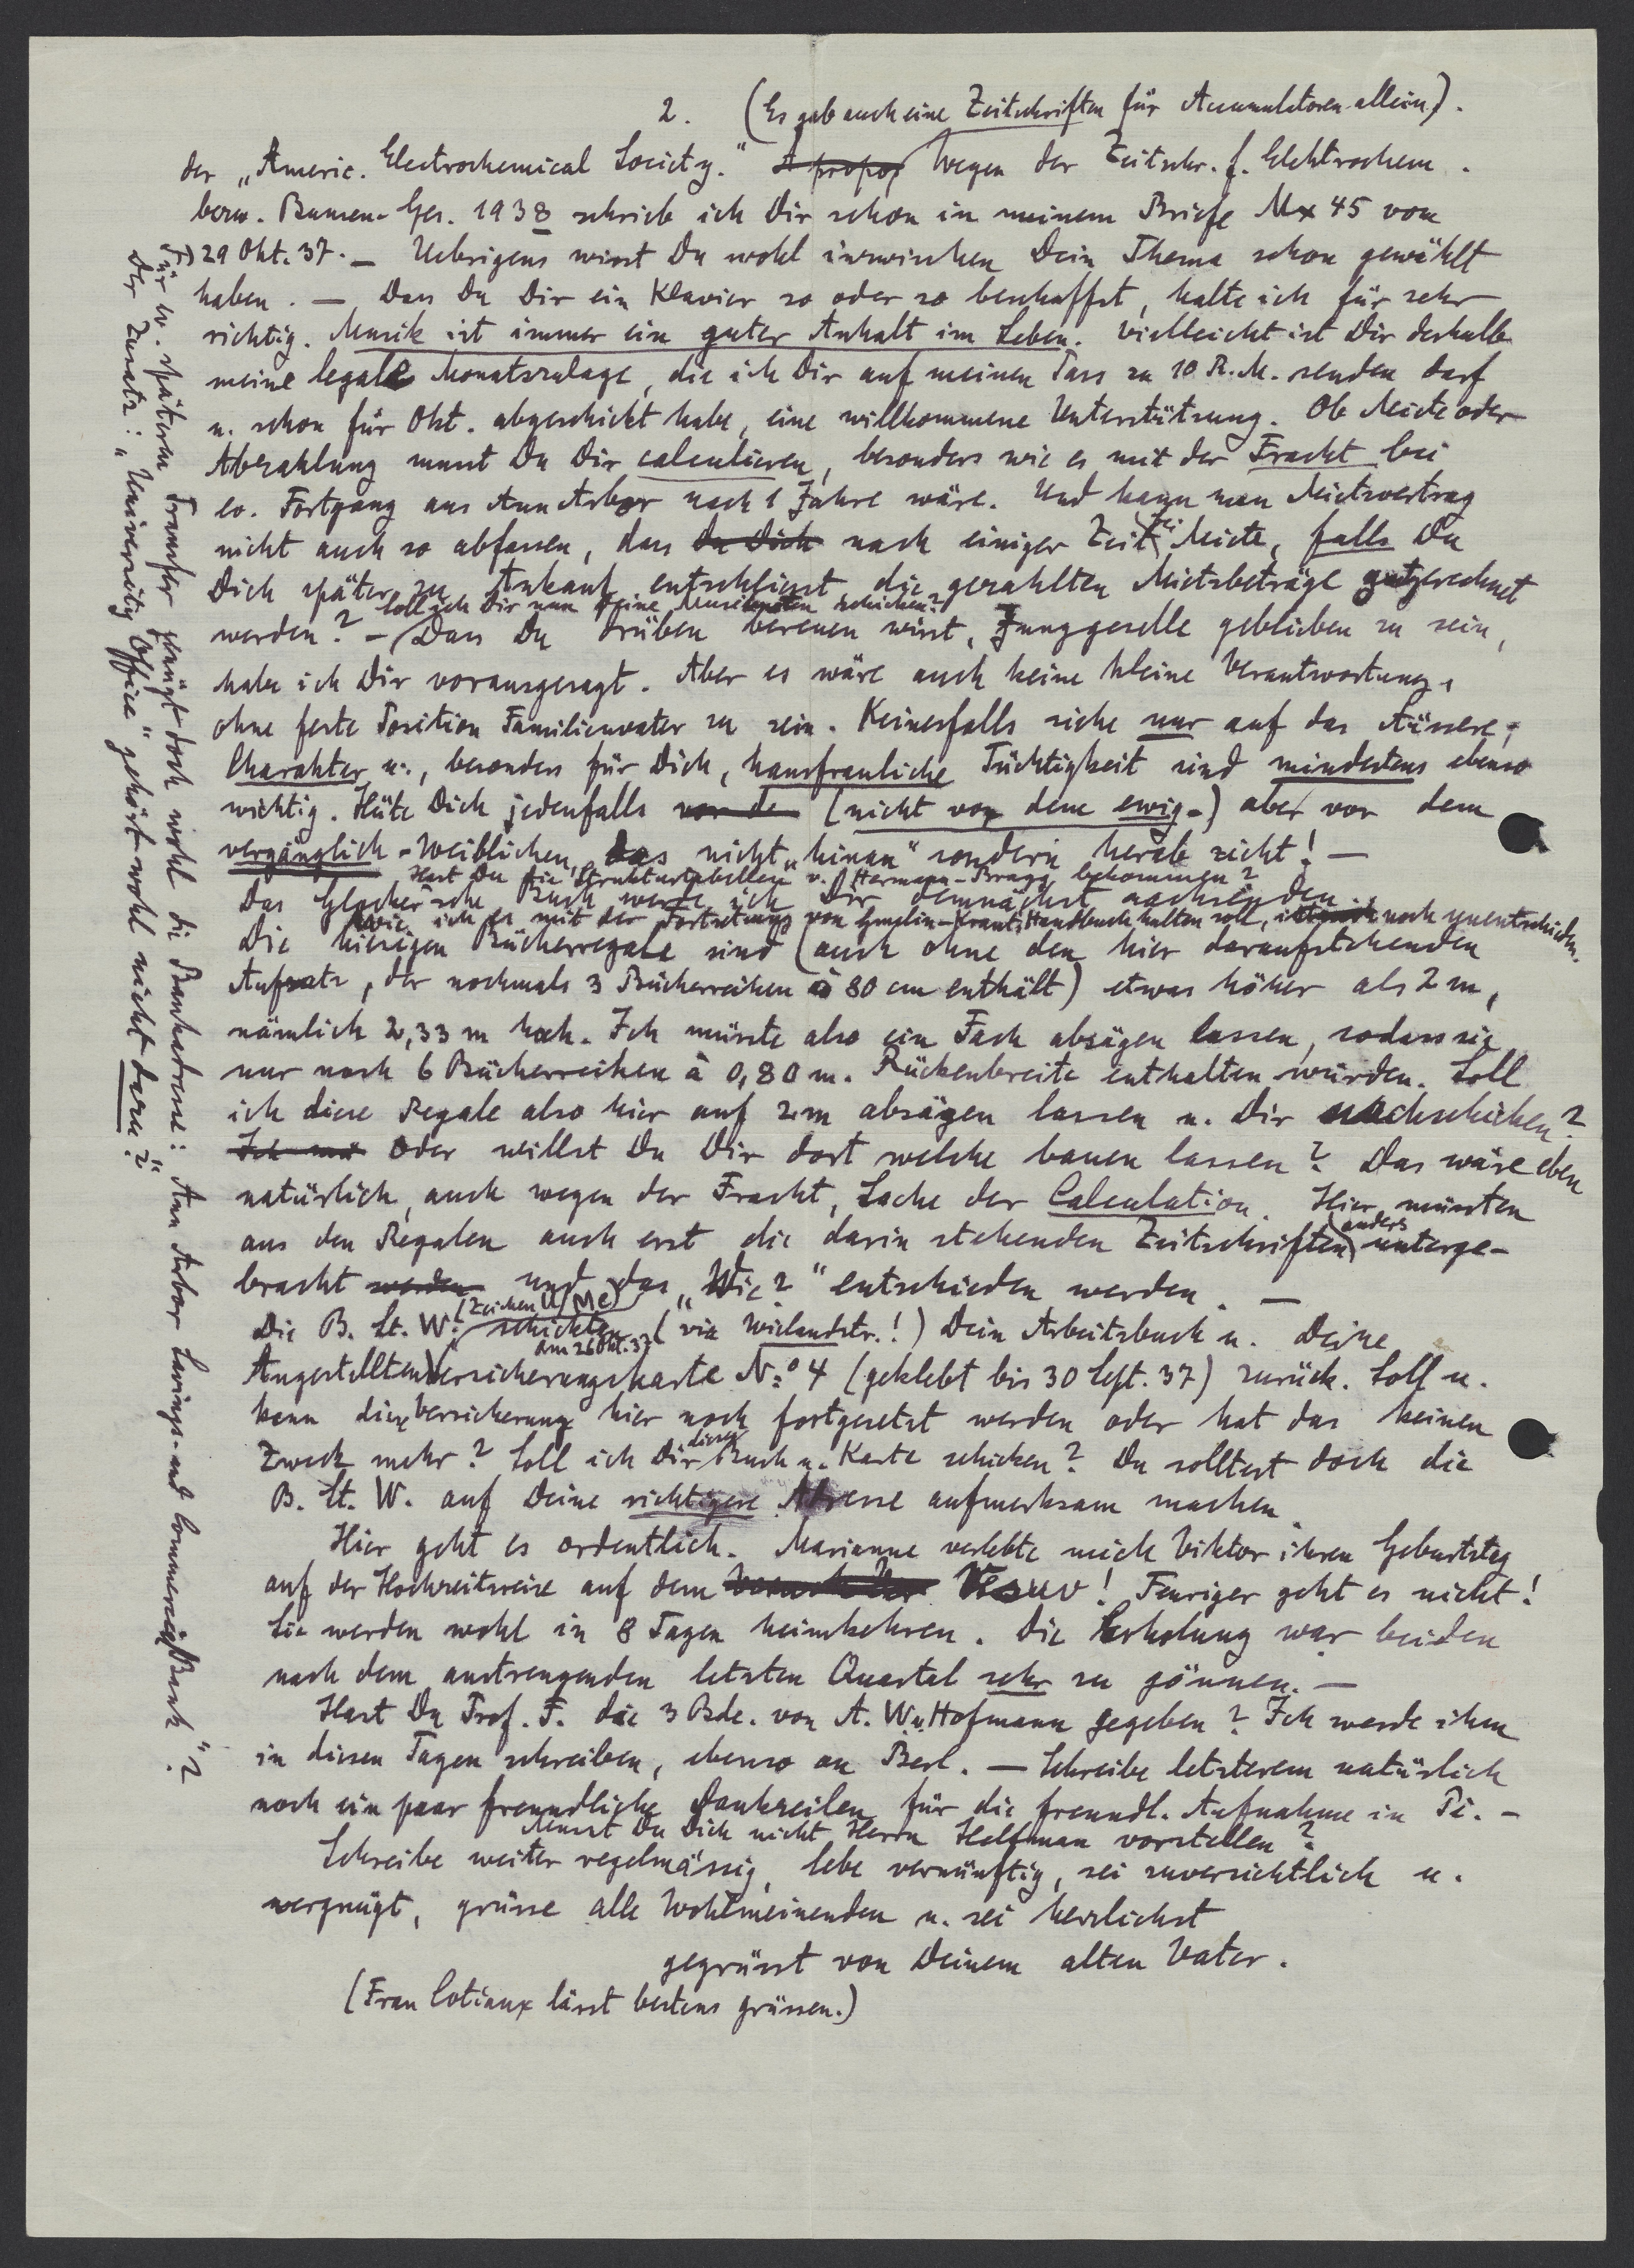 2. (Es gab auch eine Zeitschriften für Accumulatoren allein).
der „Americ. Electrochemical Society." A propos Wegen der Zeitschr. f. Elektrochem.
bezw. Bunsen-Ges. 1938 schrieb ich Dir schon in meinem Briefe Mx 45 vom
29 Okt. 37. — Uebrigens wirst Du wohl inzwischen Dein Thema schon gewählt
haben. — Dass Du Dir ein Klavier so oder so beschaffst, halte ich für sehr
richtig. Musik ist immer ein guter Anhalt im Leben. Vielleicht ist Dir deshalb
meine legale Monatszulage, die ich Dir auf meinen Pass zu 10 R.M. senden darf
u. schon für Okt. abgeschickt habe, eine willkommene Unterstützung. Ob Miete oder
Abzahlung musst Du Dir calculieren, besonders wie es mit der Fracht bei
ev. Fortgang aus Ann Arbor nach 1 Jahre wäre. Und kann man Mietsvertrag
nicht auch so abfassen, dass Du Dich nach einiger Zeit Miete, falls Du
Dich später zu Ankauf entschliesst, die gezahlten Mietsbeträge gutgerechnet
Soll ich Dir nun Deine Musiknoten schicken?
werden? — Dass Du drüben bereuen wirst, Junggeselle geblieben zu sein,
habe ich Dir vorausgesagt. Aber es wäre auch keine kleine Verantwortung,
ohne feste Position Familienvater zu sein. Keinesfalls siehe nur auf das Äussere;
Charakter u., besonders für Dich, hausfrauliche Tüchtigkeit sind mindestens ebenso
wichtig. Hüte Dich jedenfalls vor de (nicht vor dem ewig-) aber vor dem
vergänglich-Weiblichen, das nicht „hinan" sondern herab zieht! —
Hast Du die Strukturtabellen v. Hermann-Bragg bekommen?
Das Glocker'sche Buch werde ich Dir demnächst nachsenden.
Wie ich es mit der Fortsetzung von Gmelin-Kraut's Handbuch halten soll, ist noch unentschieden.
Die hiesigen Bücherregale sind (auch ohne den hier daraufstehenden
Aufsatz, der nochmals 3 Bücherreihen à 80 cm enthält) etwas höher als 2 m,
nämlich 2,33 m hoch. Ich müsste also ein Fach absägen lassen, sodass sie
nur noch 6 Bücherreihen à 0,80 m. Rückenbreite enthalten würden. Soll
ich diese Regale also hier auf 2 m absägen lassen u. Dir nachschicken?
Ich mü Oder willst Du Dir dort welche bauen lassen? Das wäre eben
natürlich, auch wegen der Fracht, Sache der Calculation. Hier müssten
aus den Regalen auch erst die darin stehenden Zeitschriften anders unterge-
bracht werden und das „Wie?" entschieden werden. —
Die B. St. W. (Zeichen U/Me) schickten am 26 Okt. 37 (via Wielandstr.!) Dein Arbeitsbuch u. Deine
Angestelltenversicherungskarte No 4 (geklebt bis 30 Sept. 37) zurück. Soll u.
kann diese Versicherung hier noch fortgesetzt werden oder hat das keinen
Zweck mehr? Soll ich Dir dieses Buch u. Karte schicken? Du solltest doch die
B. St. W. auf Deine richtigere Adresse aufmerksam machen.
Hier geht es ordentlich. Marianne verlebte nebst Viktor ihren Geburtstag
auf der Hochzeitsreise auf dem Vesuv! Feuriger geht es nicht!
Sie werden wohl in 8 Tagen heimkehren. Die Erholung war beiden
nach dem anstrengenden letzten Quartal sehr zu gönnen. —
Hast Du Prof. F. die 3 Bde. von A. W. v. Hofmann gegeben? Ich werde ihm
in diesen Tagen schreiben, ebenso an Berl. — Schreibe letzterem natürlich
noch ein paar freundliche Dankzeilen für die freundl. Aufnahme in Pi. —
Musst Du Dich nicht Herrn Helfman vorstellen?
Schreibe weiter regelmässig, lebe vernünftig, sei zuversichtlich u.
vergnügt, grüsse alle Wohlmeinenden u. sei herzlichst
gegrüsst von Deinem alten Vater.
(Frau Cotiaux lässt bestens grüssen.)
Für ev. späteren Transfer genügt doch wohl die Bankadresse: Ann Arbor Savings- and Commercial Bank"?
Der Zusatz: „University Office" gehört wohl nicht dazu?